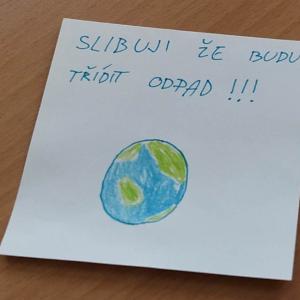 SLIBUJI ŽE BUDU
TŘÍDIT ODPAD !!!